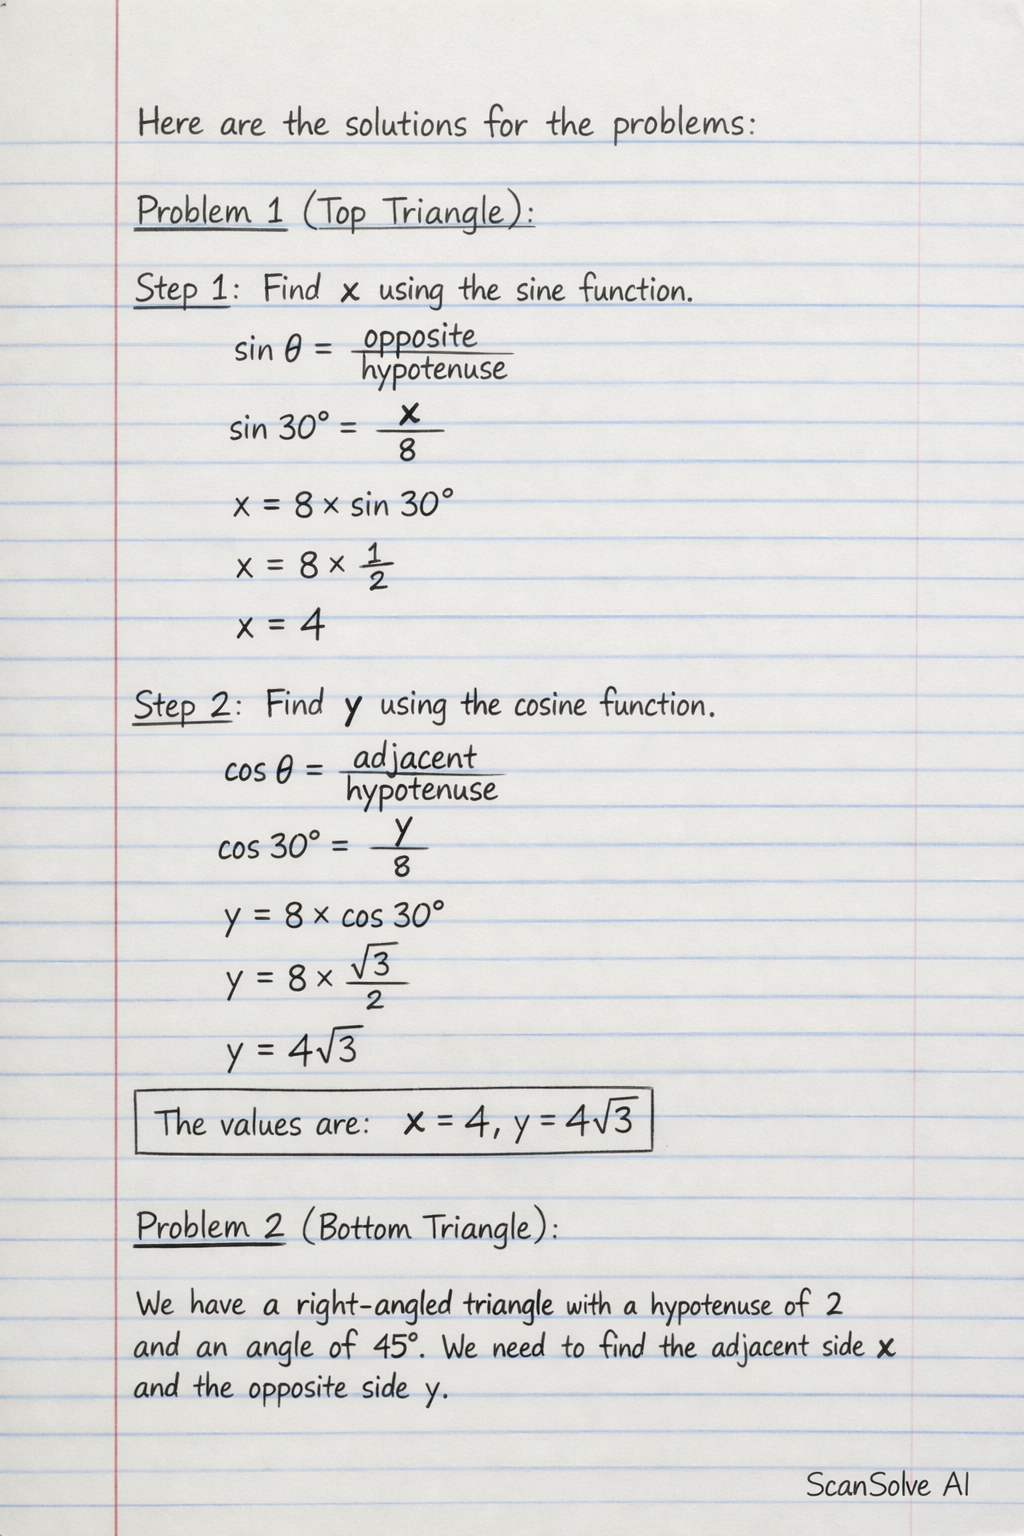 Here are the solutions for the problems:
Problem 1 (Top Triangle):
Step 1: Find x using the sine function.
sin θ = opposite/hypotenuse
sin 30° = x/8
x = 8 × sin 30°
x = 8 × 1/2
x = 4
Step 2: Find y using the cosine function.
cos θ = adjacent/hypotenuse
cos 30° = y/8
y = 8 × cos 30°
y = 8 × √3/2
y = 4√3
The values are: x = 4, y = 4√3
Problem 2 (Bottom Triangle):
We have a right-angled triangle with a hypotenuse of 2
and an angle of 45°. We need to find the adjacent side x
and the opposite side y.
ScanSolve AI